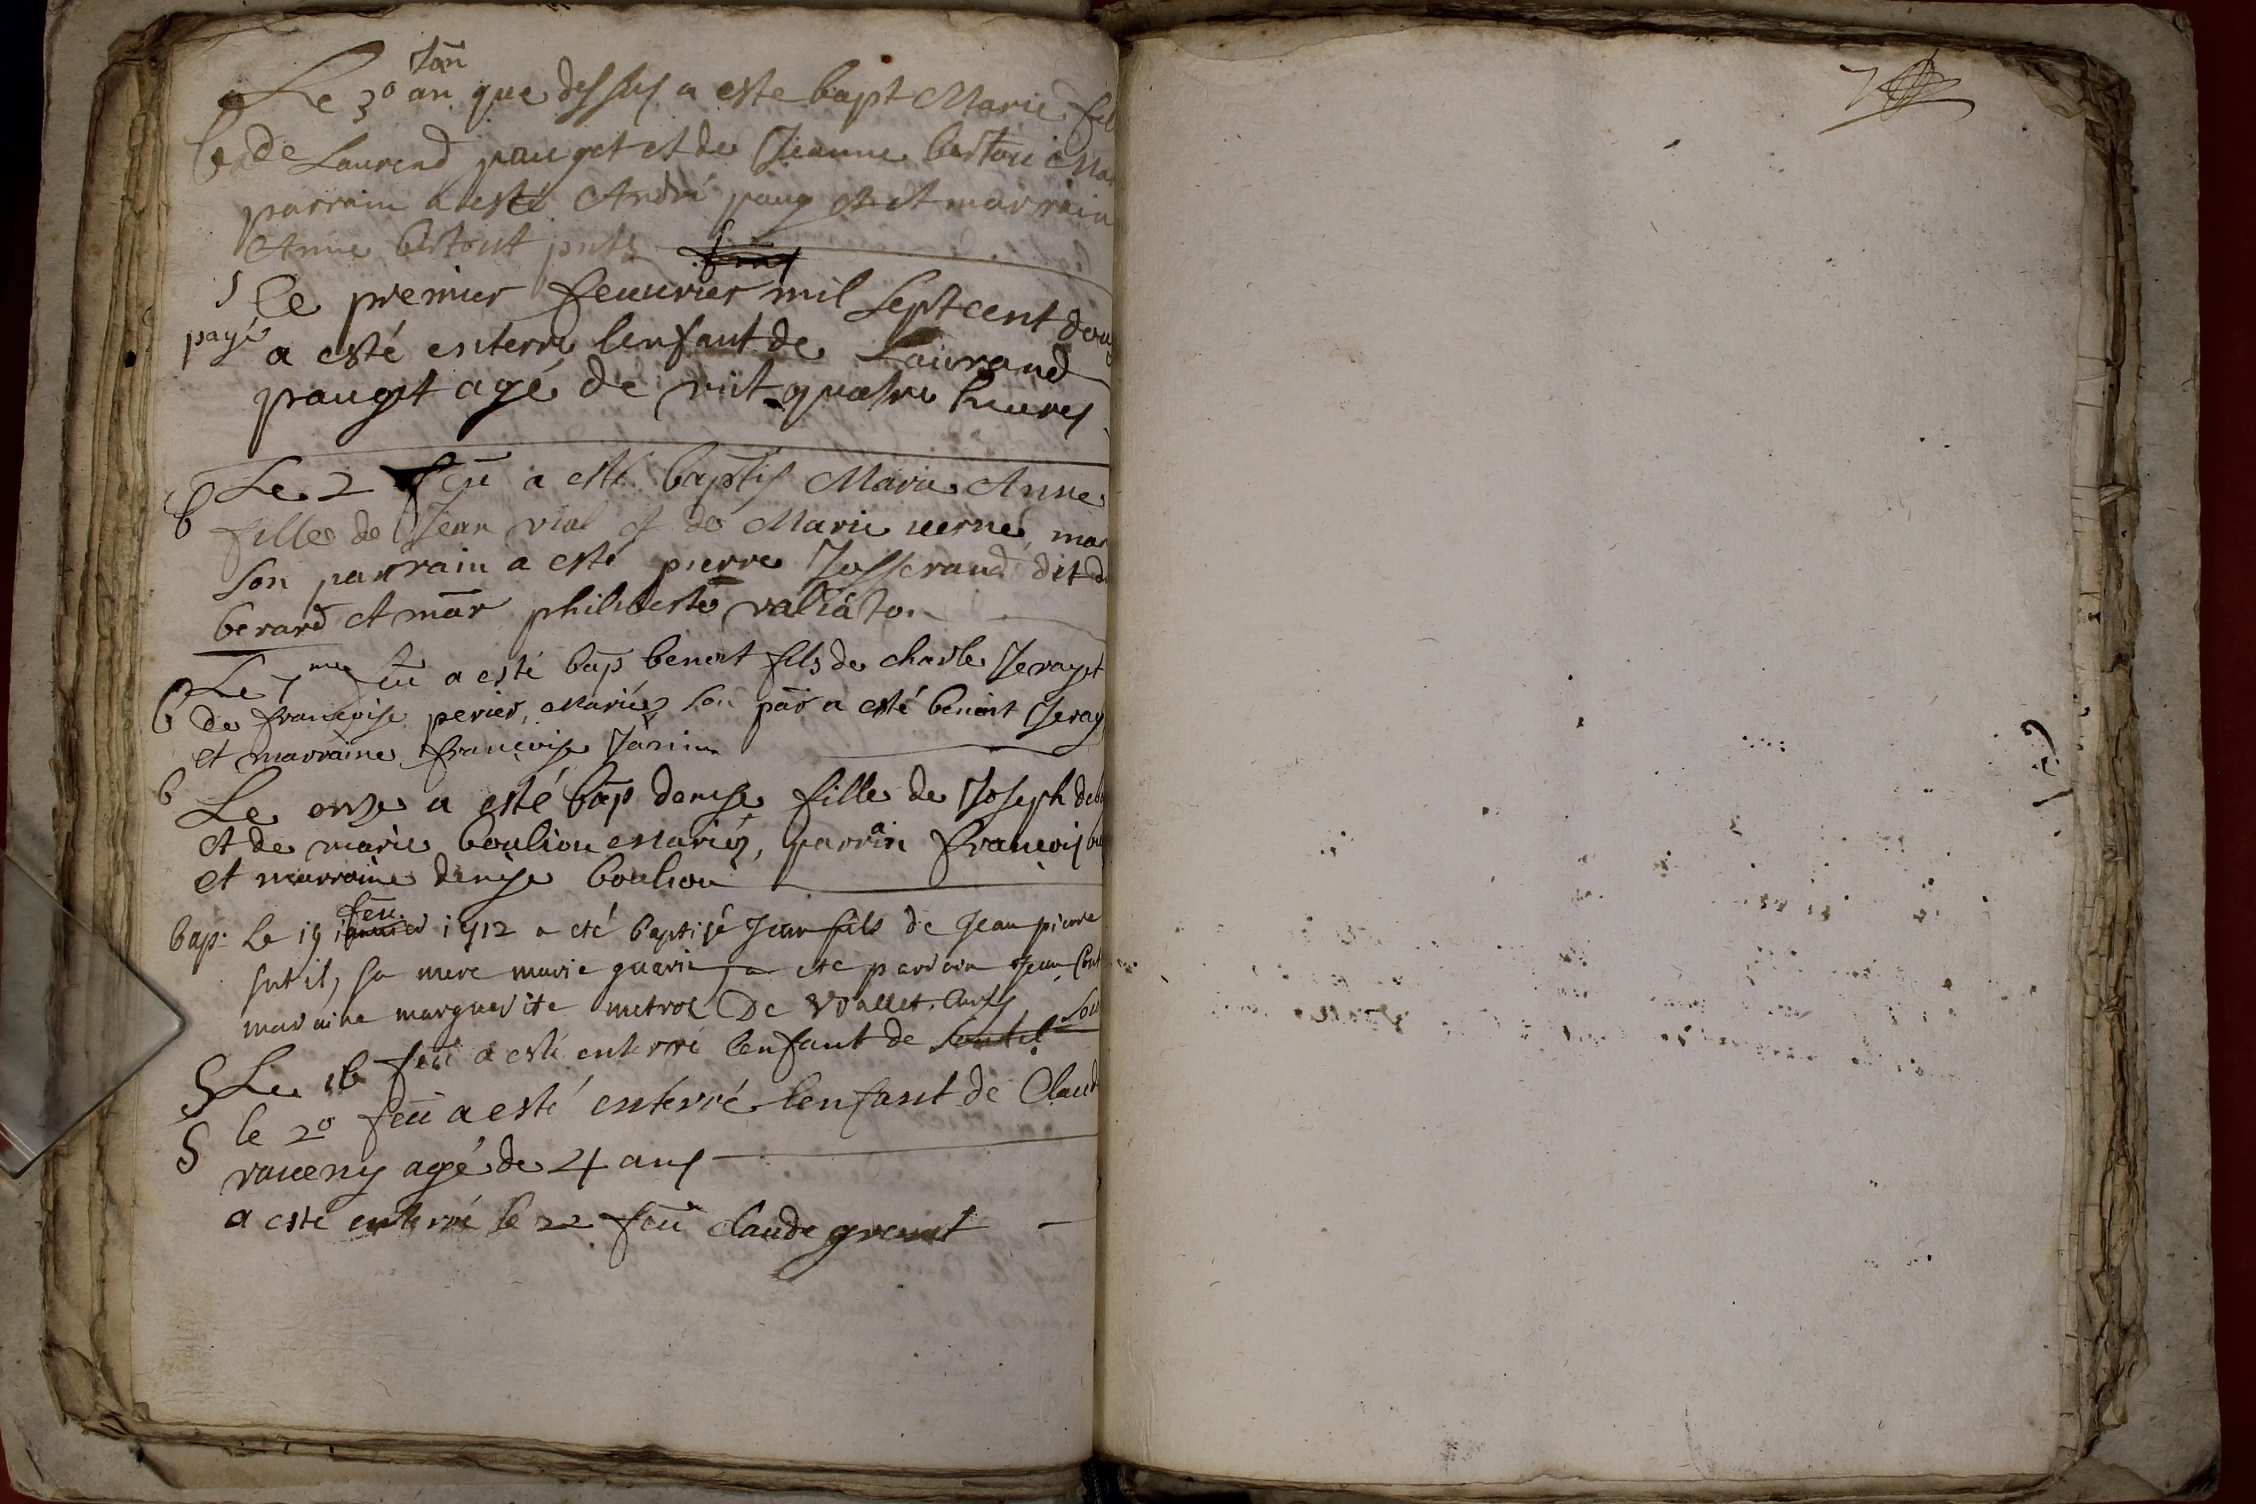 Jan
Le 30 an que dessus a este bapt Marie fil
b de Laurend pauget et de Jeanne bertou mar
parrain a esté André paug et et marrain
Anne bertout
s Le premier feuurier mil sept cent dou
payé a esté enterré lenfant de Laurand
pauget agé de vint quatre heures
b Le 2 feu a esté baptis Marie Anne
fille de Jean vial et de Marie uerne, mar
son parrain a esté pierre Josserand dit d
berard et mar philiberte
Le 7me feu a esté bap benoit fils de charle Jeray et
b de françoise perier, mariéz son par a esté benoit Jeray
et marraine françoise Janin
b Le onze a esté bap denise fille de Joseph deb
et de marie bouliou mariéz, parrain françois
et marraine denise bouliou
feu.
bap: Le 19 1712 a eté baptisé Jean fils de Jean pierre
sutil, sa mere marie guerin, a ete parrain Jean
maraine marguerite De
S Le 16 feu a esté enterré lenfant de soutil Sou
S le 20 feu a esté enterré lenfant de Claud
agé de 4 ans
a esté enterré le 22 feu claude grenet